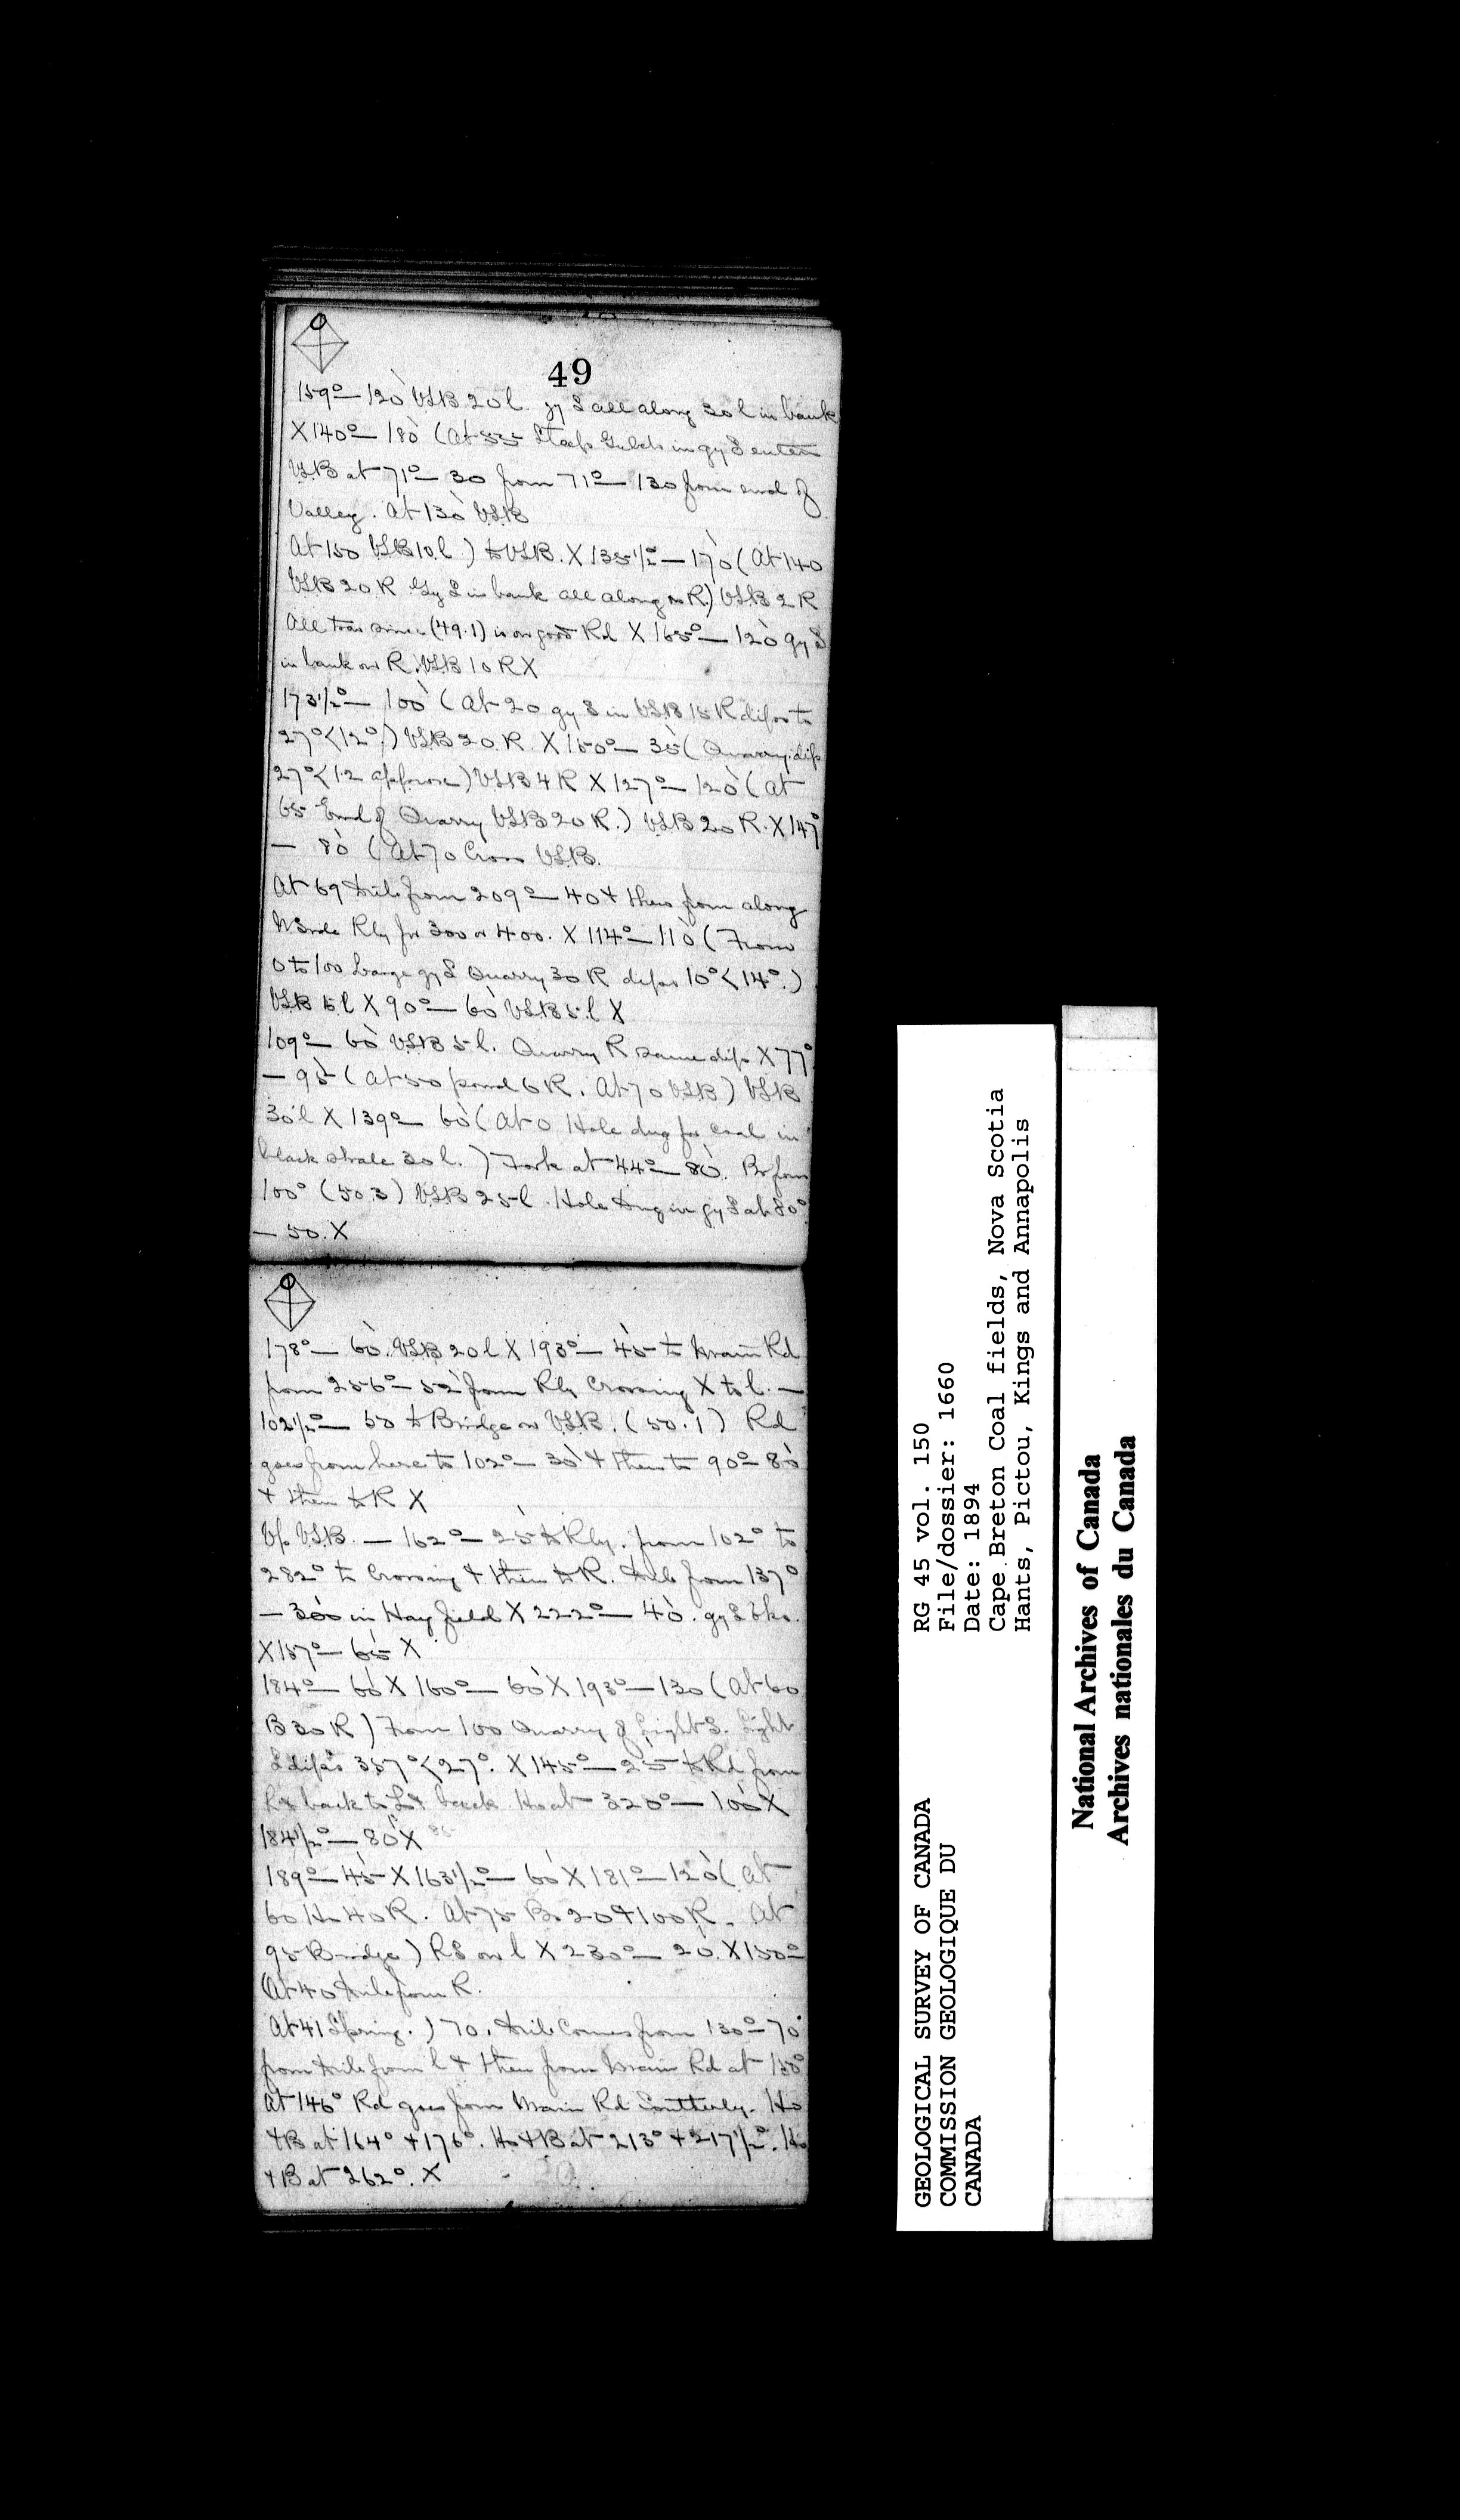 49
159° — 120` VSB 20 l. gy S all along 30 l in bank
X 140° — 180` (At 55 Steep Gulch in gy S enters
VSB at 71° — 30 from 71° — 130 from end of
Valley. At 130` VSB
At 150 VSB 10 l) to VSB. X 135 1/2° — 170` (At 140
VSB 20 R Gy S in bank all along on R.) VSB 2 R
All trav since (49.1) is on good Rd X 165° — 120` gy S
in bank on R. VSB 10 R X
173 1/2° — 100` (At 20 gy S in VSB 15 R dips to
27° < 12°.) VSB 20 R. X 150° — 35` (Quarry dip
27° < 12 approx) VSB 4 R X 127° — 120` (at
65 End of Quarry VSB 20 R.) VSB 20 R. X 147°
— 80` (At 70 Cross VSB.
At 69 from 209° — 40 + then from along
N Side Rly for 300 or 400. X 114° — 110` (From
0 to 100 Large gy S Quarry 30 R dips 10° < 14°.)
VSB 5 l X 90° — 60` VSB 5 l X
109° — 60` VSB 5 l. Quarry R same dip X 77°
— 95` (At 50 pond 6 R. At 70 VSB) VSB
30 l X 139° — 60` (At 0 Hole dug for coal in
black shale 30 l.) Fork at 44° — 80`. Br from
100° (50.3) VSB 25 l. Hole dug in gy S at 80°
— 50. X
178° — 60`. VSB 20 l X 193° — 45` to Main Rd
from 256° — 52` from Rly Crossing X to l. —
102 1/2° — 50 to Bridge on VSB. (50.1) Rd
goes from here to 102° — 30` + then to 90° 80`
+ then to R X
Up VSB. — 162° — 25` to Rly. from 102° to
282° to Crossing + then to R. from 137°
— 300 in Hay field X 222° — 40`. gy S bks.
X 157° — 65` X
184° — 60` X 160° — 60` X 193° — 130 (At 60
B 30 R) From 100 Quarry of Light S. Light
S dips 357° < 27°. X 145° — 25` to Rd from
back to back. Ho at 320° — 100` X
184 1/2° — 80` X
189° — 45` X 163 1/2° — 60` X 181° — 120` (At
60 Ho 40 R. At 75 Bs 20 + 100 R. At
95 Bridge) RS on l X 230° — 20. X 150°
(At 40 from R.
At 41 Spring.) 70. Comes from 130° — 70
from from l + then from Main Rd at 150°
At 146° Rd goes from Main Rd Southerly. Ho
+ B at 164° + 176°. Ho + B at 213° + 217 1/2°. Ho
+ B at 262°. X
GEOLOGICAL SURVEY OF CANADA
COMMISSION GEOLOGIQUE DU
CANADA
RG 45 vol. 150
File/dossier: 1660
Date: 1894
Cape Breton Coal fields, Nova Scotia
Hants, Pictou, Kings and Annapolis
National Archives of Canada
Archives nationales du Canada